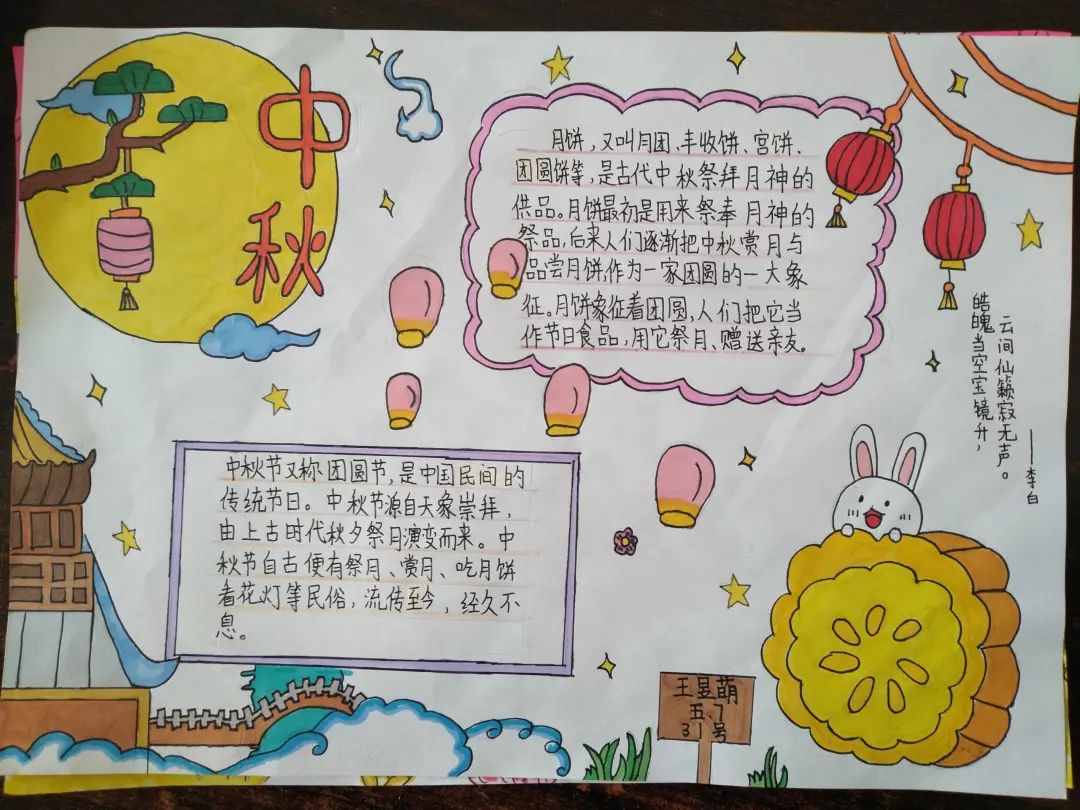 中
秋
月饼，又叫月团、丰收饼、宫饼、
团圆饼等，是古代中秋祭拜月神的
供品。月饼最初是用来祭奉月神的
祭品，后来人们逐渐把中秋赏月与
品尝月饼，作为一家团圆的一大象
征。月饼象征着团圆，人们把它当
作节日食品，用它祭月、赠送亲友。
皓魄当空宝镜升，
云间仙籁寂无声。
——李白
中秋节又称团圆节，是中国民间的
传统节日。中秋节源自天象崇拜，
由上古时代秋夕祭月演变而来。中
秋节自古便有祭月、赏月、吃月饼
看花灯等民俗，流传至今，经久不
息。
王昱萌
五.7
31号